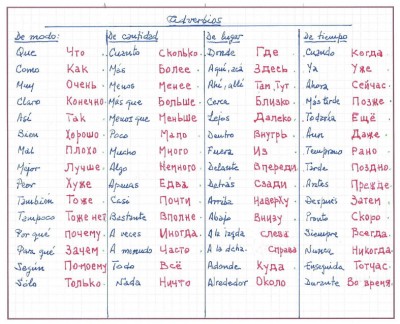 Adverbios
De modo: De cantidad De lugar De tiempo
Que Что Cuanto Сколько Donde Где Cuando Когда
Como Как Más Более Aquí, acá Здесь Ya Уже
Muy Очень Menos Менее Ahí, allí Там, Тут Ahora Сейчас
Claro Конечно Más que Больше Cerca Близко Más tarde Позже
Así Так Menos que Меньше Lejos Далеко Todavía Ещё
Bien Хорошо Poco Мало Dentro Внутрь Aun Даже
Mal Плохо Mucho Много Fuera Из Temprano Рано
Mejor Лучше Algo Немного Delante Впереди Tarde Поздно
Peor Хуже Apenas Едва Detrás Сзади Antes Прежде
También Тоже Casi Почти Arriba Наверху Después Затем
Tampoco Тоже нет Bastante Вполне Abajo Внизу Pronto Скоро
Por qué почему A veces Иногда A la izqda слева Siempre Всегда
Para qué Зачем A menudo Часто A la dcha. справа Nunca Никогда
Según Помоему Todo Всё Adonde Куда Enseguida Тотчас
Sólo Только Nada Ничто Alrededor Около Durante Во время